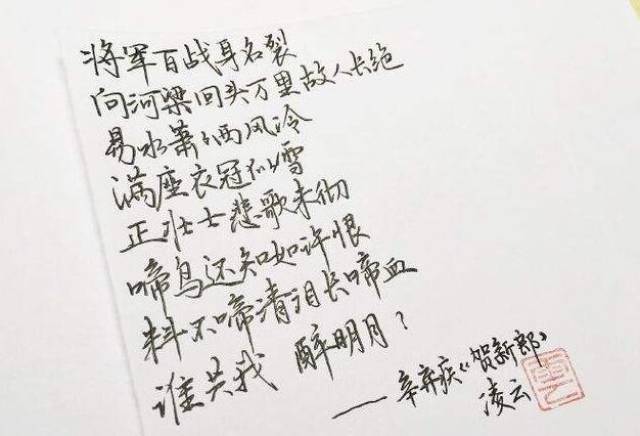 将军百战身名裂
向河梁回头万里故人长绝
易水萧々西风冷
满座衣冠似雪
正壮士悲歌未彻
啼鸟还知如许恨
料不啼清泪长啼血
谁共我 醉明月?
——辛弃疾《贺新郎》
凌云